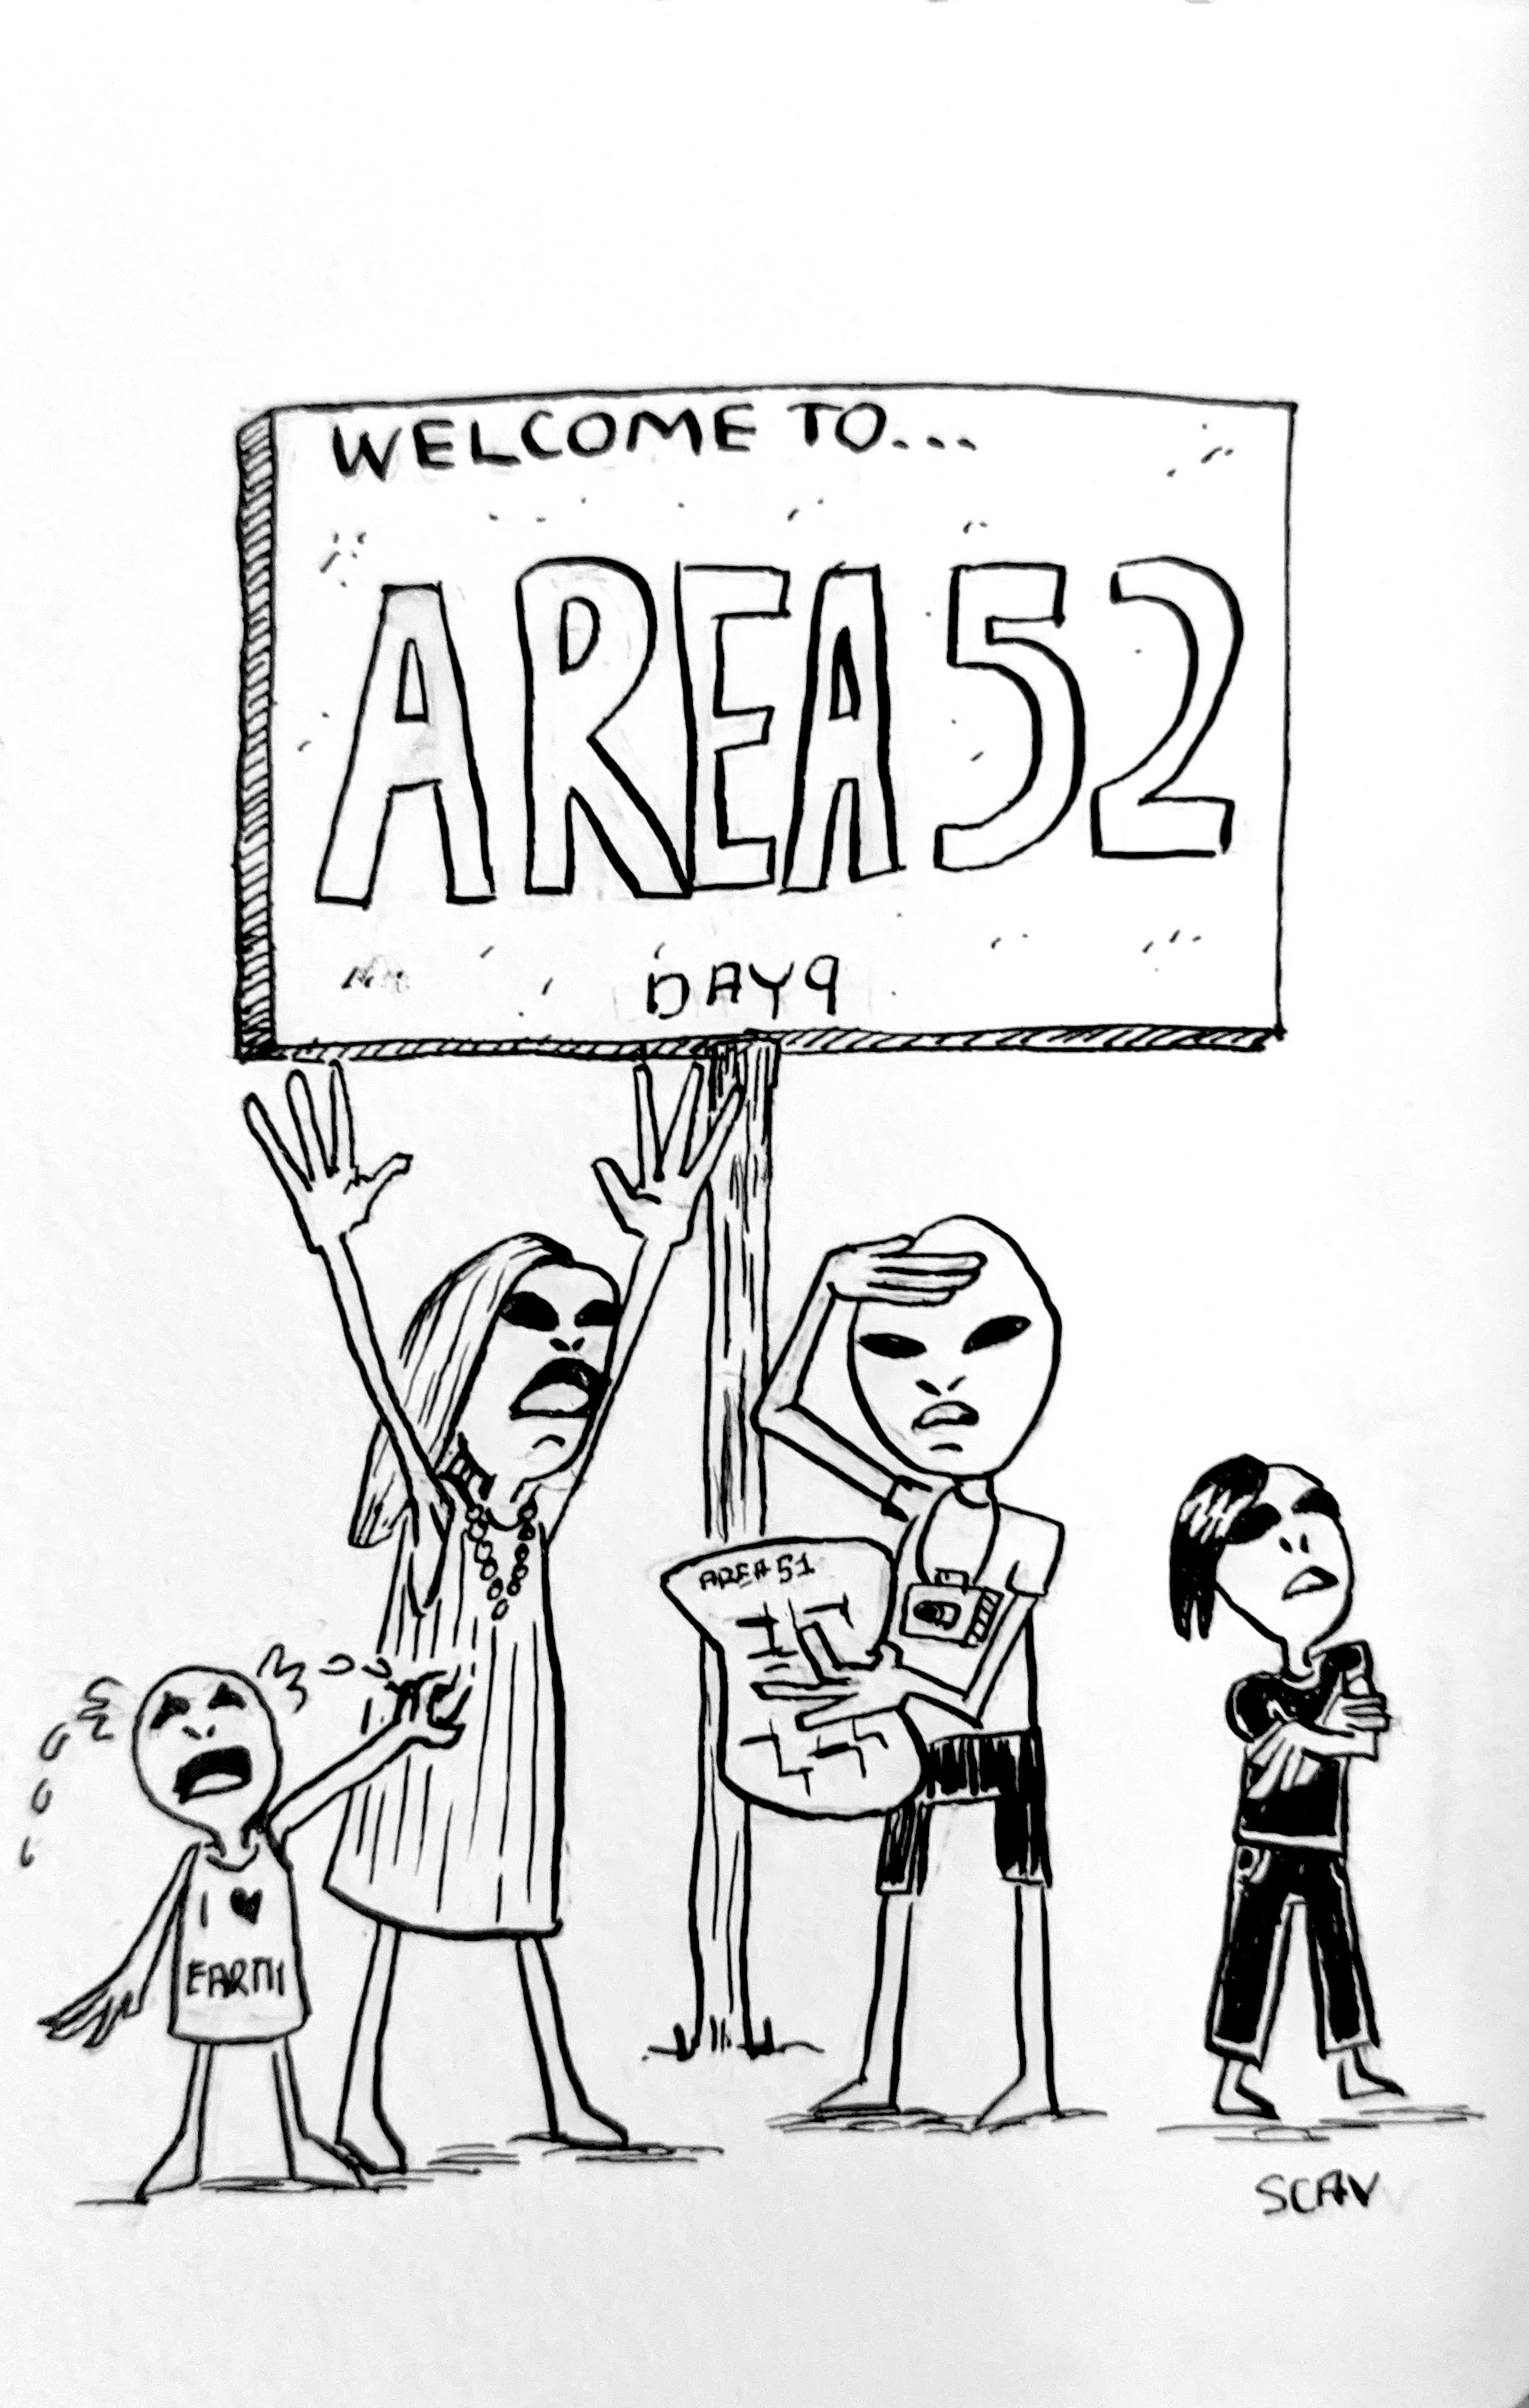 WELCOME TO...
AREA 52
DAY 9
AREA 51
I ♥
EARTH
SCAV